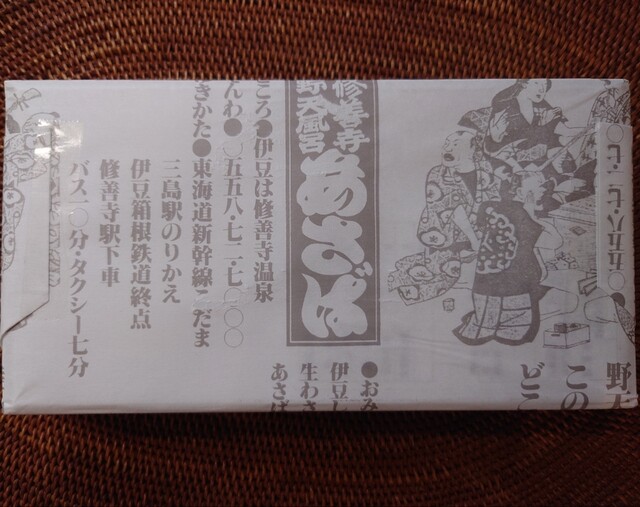 野天
この
どこ
〇五五八・七二・七
修善寺
野天風呂
あさば
ころ●伊豆は修善寺温泉
んわ●〇五五八・七二・七〇〇〇
きかた●東海道新幹線こだま
三島駅のりかえ
伊豆箱根鉄道終点
修善寺駅下車
バス一〇分・タクシー七分
●おみ
伊豆し
生わさ
あさば